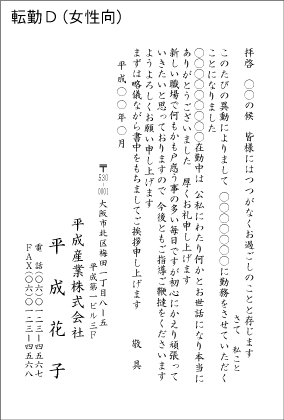 転勤D(女性向)
拝啓　〇〇の候　皆様にはつつがなくお過ごしのことと存じます
さて　私こと
このたびの異動によりまして　〇〇〇〇〇〇に勤務をさせていただく
ことになりました
〇〇〇〇〇〇〇在勤中は　公私にわたり何かとお世話になり本当に
ありがとうございました　厚くお礼申し上げます
新しい職場で何もかも戸惑う事の多い毎日ですが初心にかえり頑張って
いきたいと思っておりますので　今後ともご指導ご鞭撻をくださいます
ようよろしくお願い申し上げます
まずは略儀ながら書中をもちましてご挨拶申し上げます
敬具
平成〇〇年〇月
〒530-0001　大阪市北区梅田一丁目八ー五
平成第一ビル三F
平成産業株式会社
平成花子
電話(〇六)〇一二三ー四五六七
FAX(〇六)〇一二三ー四五六八